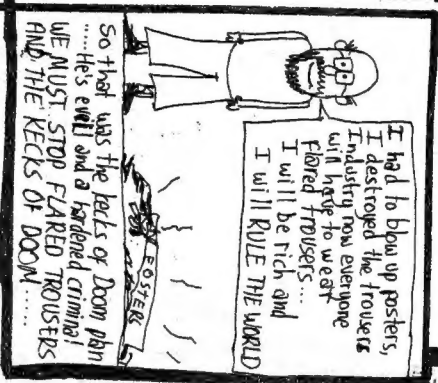 I had to blow up posters,
I destroyed the trousers
Industry now everyone
will have to wear
flared trousers...
I will be rich and
I will RULE THE WORLD
FOSTERS
So that was the Kecks of Doom plan
......He's evil! and a hardened criminal
WE MUST STOP FLARED TROUSERS
AND THE KECKS OF DOOM......